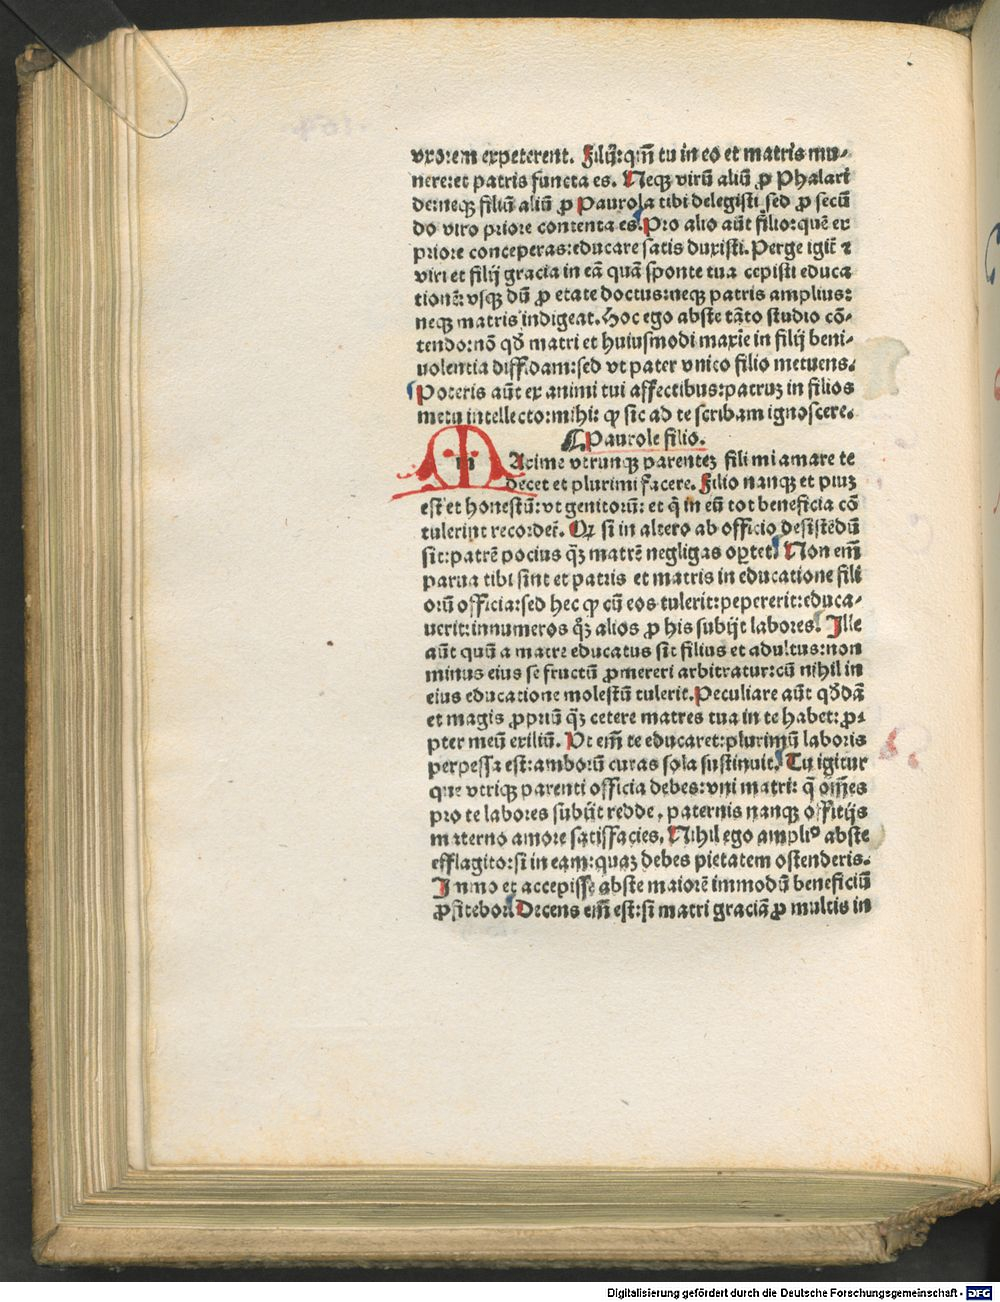 vxorem expeterent. Filijq̃:qm̃ tu in eo et matris mu-
nere:et patris functa es. Neqꝫ virū aliū ꝓ Phalari
de:neqꝫ filiū aliū ꝓ Paurola tibi delegisti sed ꝓ secū
do viro priore contenta es. Pro alio aūt filio:quē ex
priore conceperas:educare satis duxisti. Perge igit̃ ⁊
viri et filij gracia in eā quā sponte tua cepisti educa
tionē: vsqꝫ dū ꝓ etate doctus:neqꝫ patris amplius:
neqꝫ matris indigeat. Hoc ego abste tāto studio cō-
tendo:nō qd̃ matri et huiusmodi maxīe in filij beni-
uolentia diffidam:sed vt pater vnico filio metuens.
Poteris aūt ex animi tui affectibus:patruꝫ in filios
metu intellecto:mihi: ꝙ sic ad te scribam ignoscere.
¶ Paurole filio.
m Axime vtrunqꝫ parenteꝫ fili mi amare te
decet et plurimi facere. Filio nanqꝫ et piuꝫ
est et honestū: vt genitorū: et q̄ in eū tot beneficia cō
tulerint recordet̃. Qꝛ si in altero ab officio desistēdū
sit:patrē pocius q̄ꝫ matrē negligas oꝑtet. Non em̃
parua tibi sint et patris et matris in educatione fili
orū officia:sed hec ꝙ cū eos tulerit:pepererit:educa-
uerit:innumeros q̄ꝫ alios ꝓ his subijt labores. Ille
aūt quū a matre educatus sit filius et adultus:non
minus eius se fructū ꝓmereri arbitratur:cū nihil in
eius educatione molestū tulerit. Peculiare aūt qd̃dā
et magis ꝓpriū q̄ꝫ cetere matres tua in te habet: ꝓ-
pter meū exiliū. Vt em̃ te educaret:plurimū laboris
perpessa est:amborū curas sola sustinuit. Tu igitur
que vtriqꝫ parenti officia debes:vni matri: q̄ om̃es
pro te labores subijt redde, paternis nanqꝫ offitijs
materno amore satisfacies. Nihil ego ampliꝰ abste
efflagito:si in eam:quaꝫ debes pietatem ostenderis.
Inmo et accepisse abste maiorē immodū beneficiū
ꝓfitebor. Decens em̃ est:si matri graciā ꝓ multis in
Digitalisierung gefördert durch die Deutsche Forschungsgemeinschaft - DFG